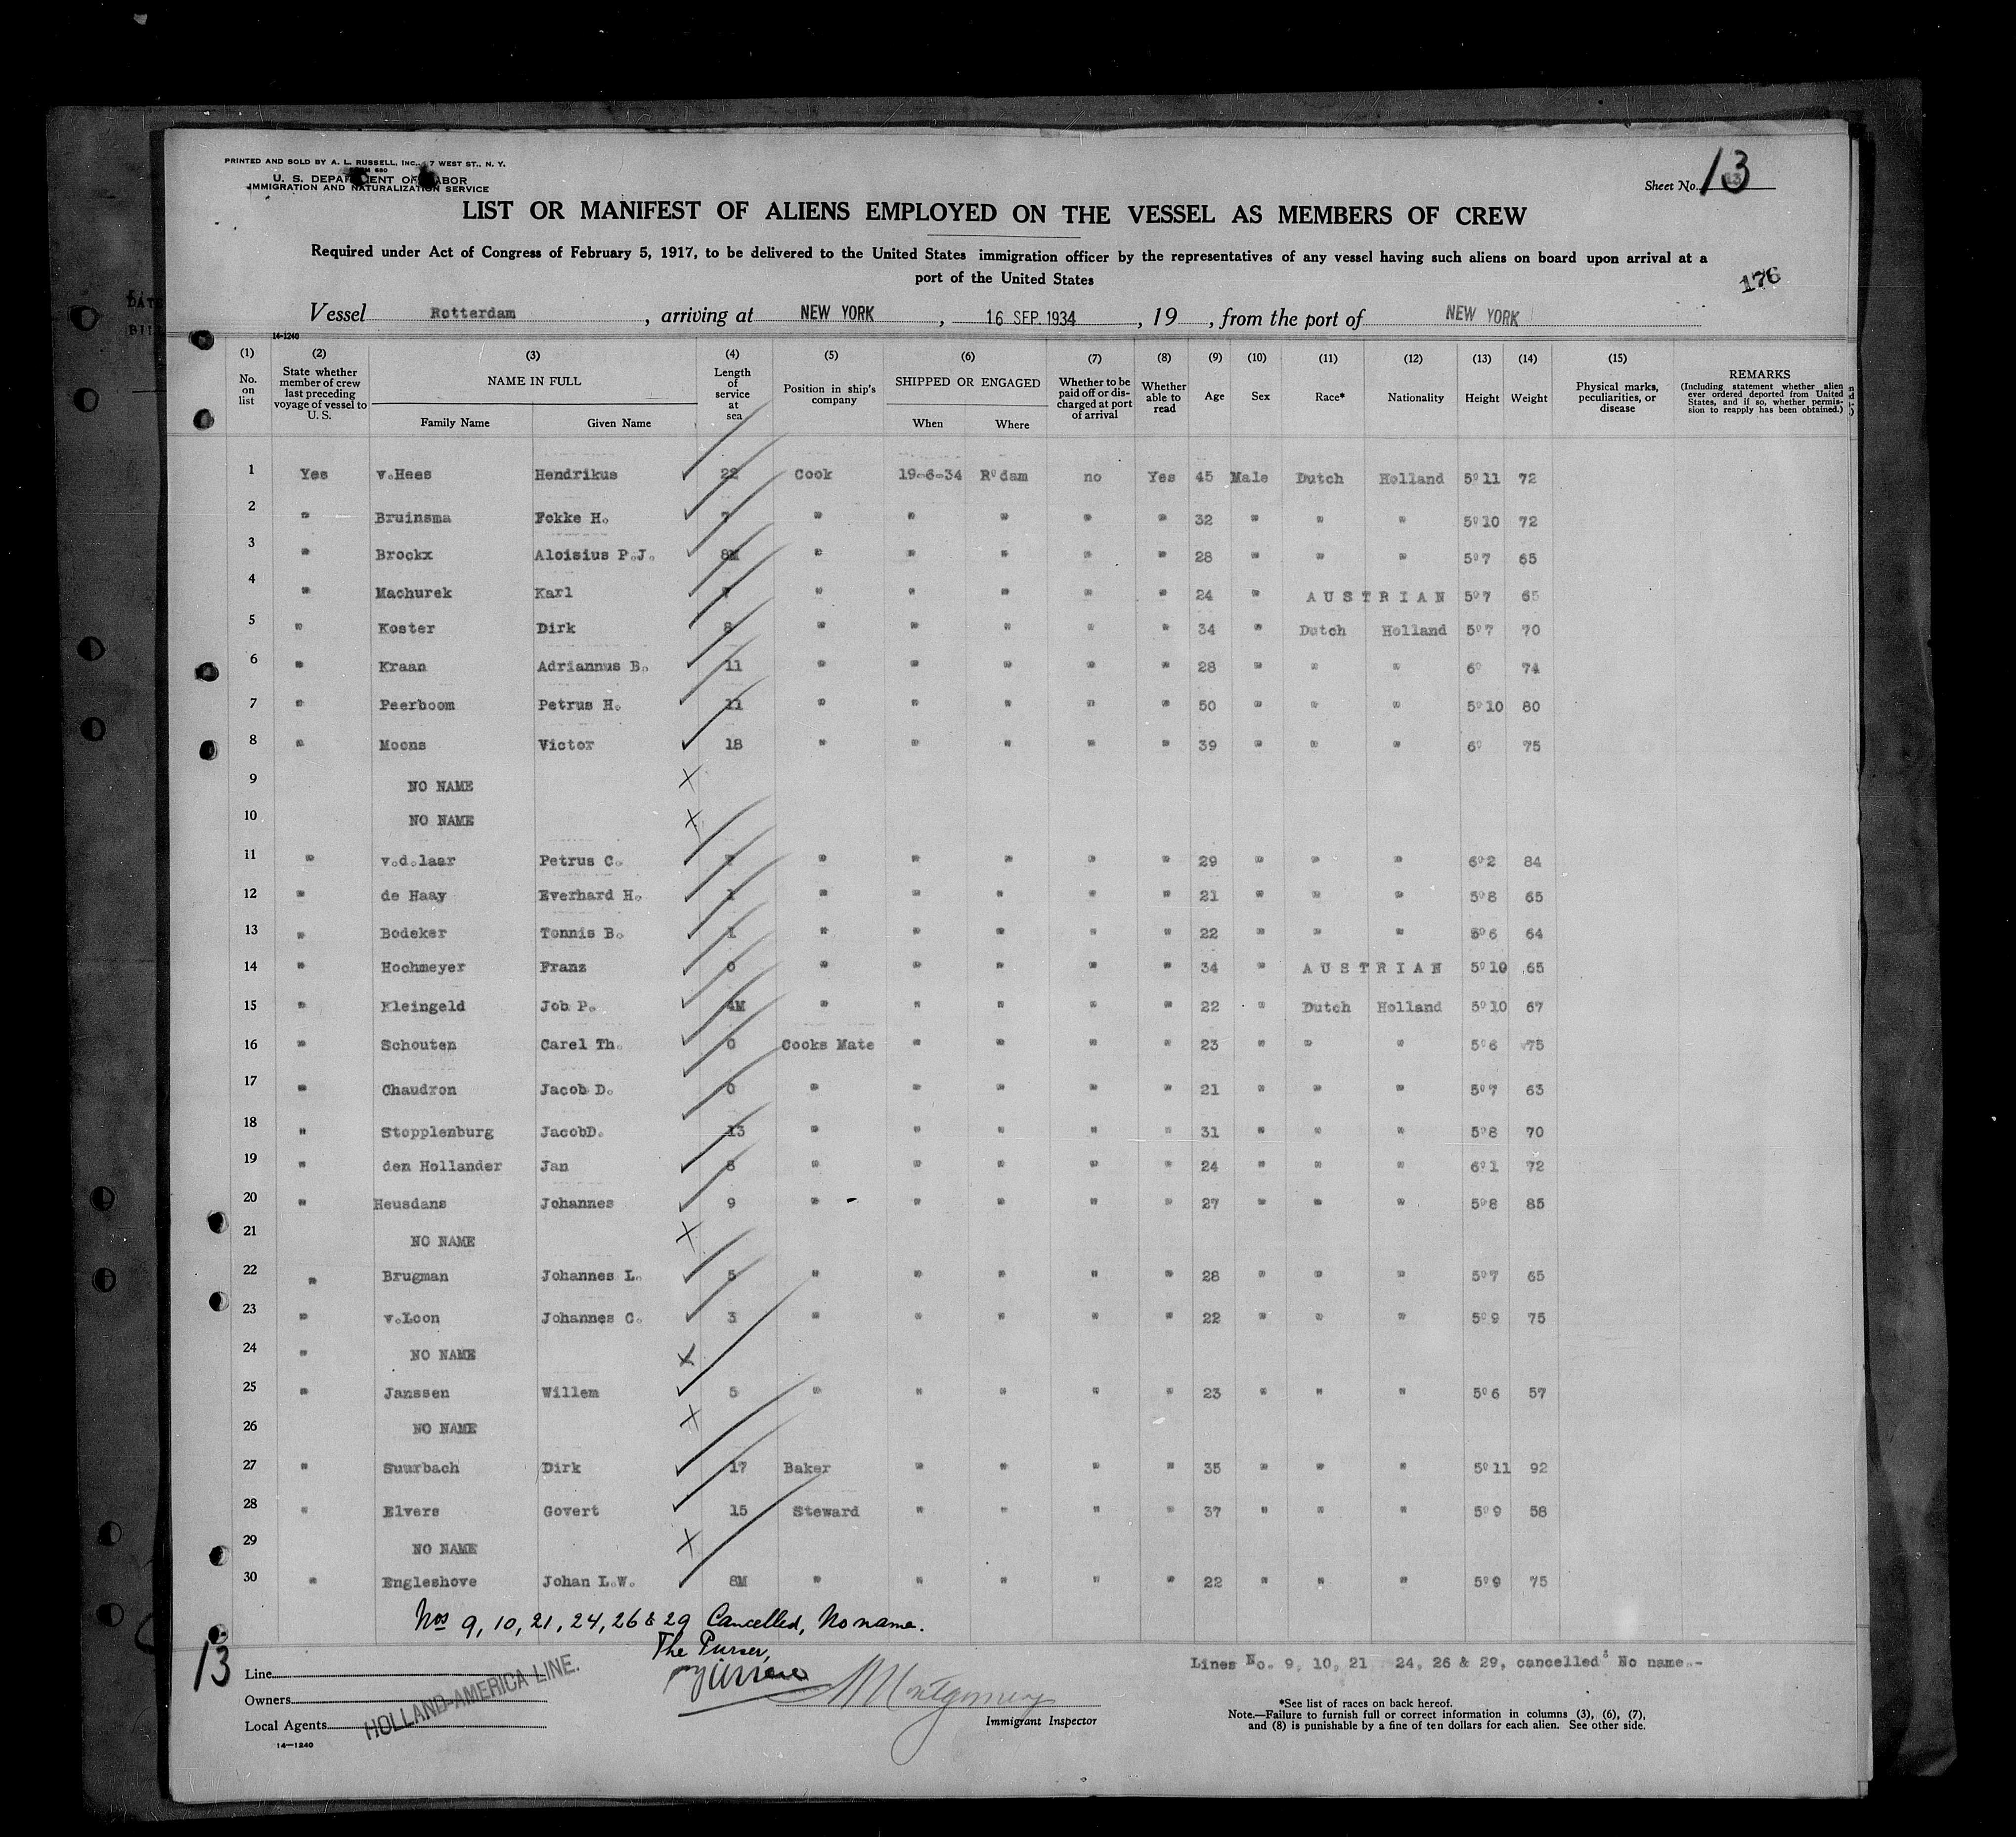 PRINTED AND SOLD BY A. L. RUSSELL, INC., 7 WEST ST., N. Y.
U. S. DEPARTMENT OF LABOR
IMMIGRATION AND NATURALIZATION SERVICE
Sheet No. 13
LIST OR MANIFEST OF ALIENS EMPLOYED ON THE VESSEL AS MEMBERS OF CREW
Required under Act of Congress of February 5, 1917, to be delivered to the United States immigration officer by the representatives of any vessel having such aliens on board upon arrival at a
port of the United States
176
Vessel Rotterdam, arriving at NEW YORK, 16 SEP. 1934, 19, from the port of NEW YORK
14-1240
(1) (2) (3) (4) (5) (6) (7) (8) (9) (10) (11) (12) (13) (14) (15)
No. on list
State whether member of crew last preceding voyage of vessel to U. S.
NAME IN FULL
Family Name Given Name
Length of service at sea
Position in ship's company
SHIPPED OR ENGAGED
When Where
Whether to be paid off or discharged at port of arrival
Whether able to read
Age Sex Race* Nationality Height Weight
Physical marks, peculiarities, or disease
REMARKS
(Including statement whether alien ever ordered deported from United States, and if so, whether permission to reapply has been obtained.)
1 Yes v.Hees Hendrikus 22 Cook 19-6-34 R'dam no Yes 45 Male Dutch Holland 5'11 72
2 " Bruinsma Fokke H. 7 " " " " " 32 " " " 5'10 72
3 " Brockx Aloisius P.J. 8M " " " " " 28 " " " 5'7 65
4 " Machurek Karl " " " " " 24 " AUSTRIAN 5'7 65
5 " Koster Dirk 8 " " " " " 34 " Dutch Holland 5'7 70
6 " Kraan Adriannus B. 11 " " " " " 28 " " " 6' 74
7 " Peerboom Petrus H. 11 " " " " " 50 " " " 5'10 80
8 " Moons Victor 18 " " " " " 39 " " " 6' 75
9 NO NAME
10 NO NAME
11 " v.d.laar Petrus C. 7 " " " " " 29 " " " 6'2 84
12 " de Haay Everhard H. 1 " " " " " 21 " " " 5'8 65
13 " Bodeker Tonnis B. 1 " " " " " 22 " " " 5'6 64
14 " Hochmeyer Franz 0 " " " " " 34 " AUSTRIAN 5'10 65
15 " Kleingeld Job P. 4M " " " " " 22 " Dutch Holland 5'10 67
16 " Schouten Carel Th. 0 Cooks Mate " " " " 23 " " " 5'6 75
17 " Chaudron Jacob D. 0 " " " " " 21 " " " 5'7 63
18 " Stopplenburg JacobD. 13 " " " " " 31 " " " 5'8 70
19 " den Hollander Jan 8 " " " " " 24 " " " 6'1 72
20 " Heusdans Johannes 9 " " " " " 27 " " " 5'8 85
21 NO NAME
22 " Brugman Johannes L. 5 " " " " " 28 " " " 5'7 65
23 " v.Loon Johannes C. 3 " " " " " 22 " " " 5'9 75
24 " NO NAME
25 " Janssen Willem 5 " " " " " 23 " " " 5'6 57
26 NO NAME
27 " Suurbach Dirk 17 Baker " " " " 35 " " " 5'11 92
28 " Elvers Govert 15 Steward " " " " 37 " " " 5'9 58
29 NO NAME
30 " Engleshove Johan L.W. 8M " " " " " 22 " " " 5'9 75
Nos 9, 10, 21, 24, 26 & 29 Cancelled, No name.
The Purser,
Lines No. 9, 10, 21 24, 26 & 29, cancelled: No name.-
13
Line
Owners
Local Agents
HOLLAND-AMERICA LINE.
14—1240
Montgomery
Immigrant Inspector
*See list of races on back hereof.
Note.—Failure to furnish full or correct information in columns (3), (6), (7),
and (8) is punishable by a fine of ten dollars for each alien. See other side.